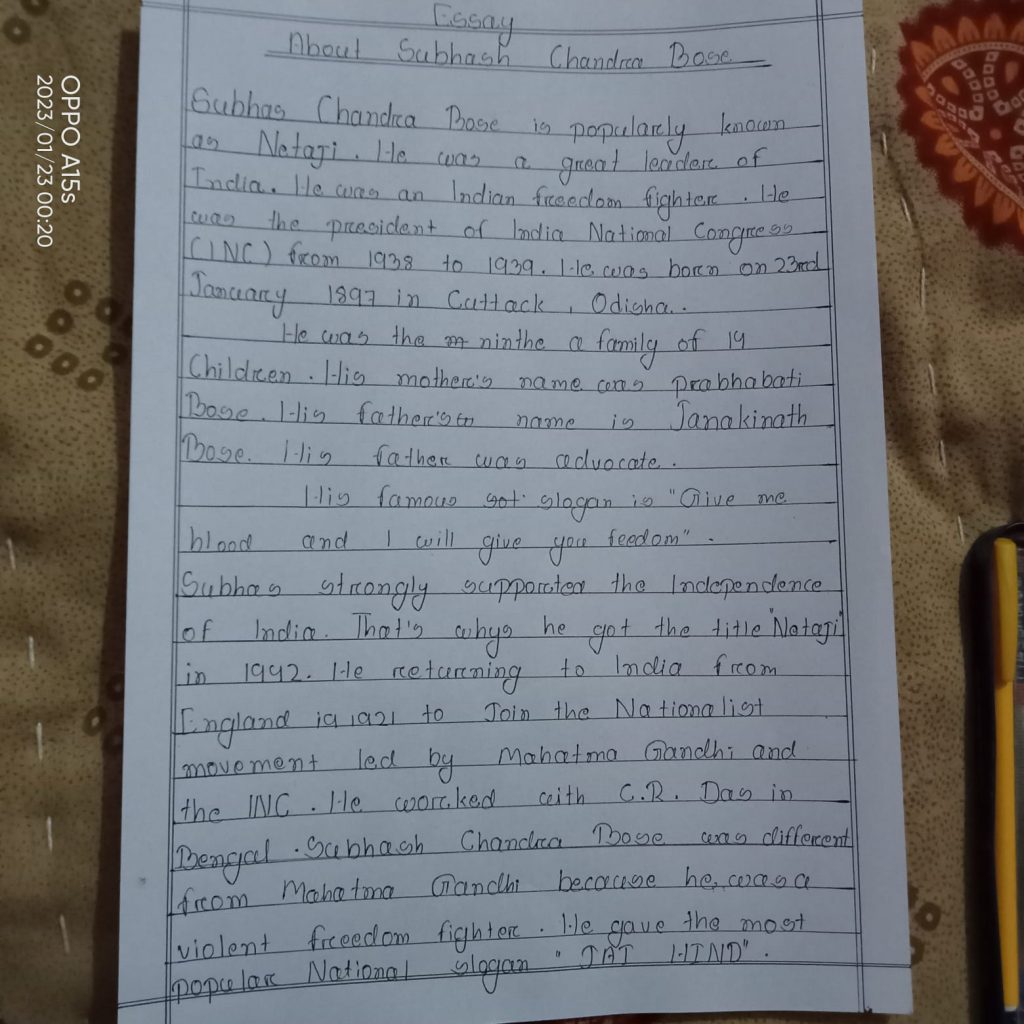 Essay
About Subhash Chandra Bose
Subhas Chandra Bose is popularly known
as Netaji. He was a great leader of
India. He was an Indian freedom fighter. He
was the president of India National Congress
(INC) from 1938 to 1939. He was born on 23rd
January 1897 in Cuttack, Odisha.
He was the ninthe a family of 14
Children. His mother's name was Prabhabati
Bose. His father's name is Janakinath
Bose. His father was advocate.
His famous slogan is "Give me
blood and I will give you feedom".
Subhas strongly supported the Independence
of India. That's whys he got the title "Netaji"
in 1942. He returning to India from
England in 1921 to Join the Nationalist
movement led by Mahatma Gandhi and
the INC. He worked with C.R. Das in
Bengal. Subhash Chandra Bose was different
from Mahatma Gandhi because he was a
violent freedom fighter. He gave the most
popular National slogan "JAI HIND".
OPPO A15s
2023/01/23 00:20